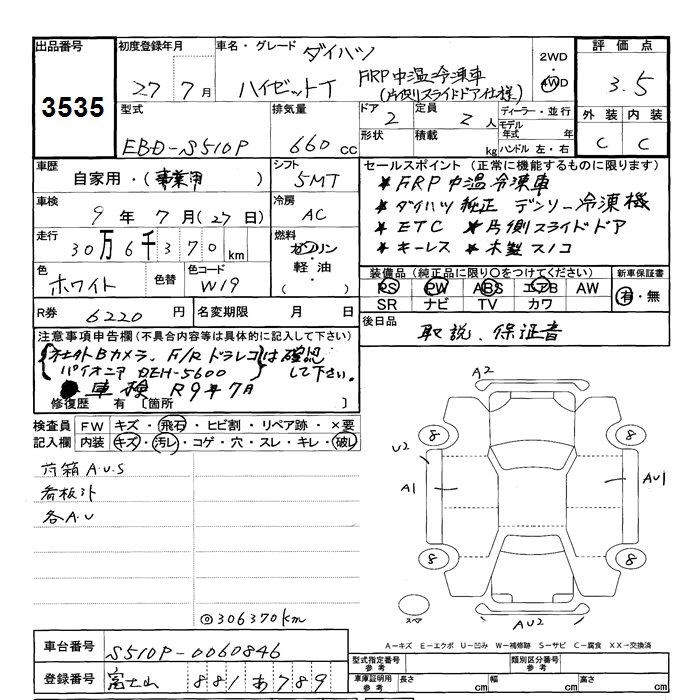 出品番号 初度登録年月 車名・グレード ダイハツ 2WD 評価点
3535 27年 7月 ハイゼットT FRP中温冷凍車 4WD 3.5
(片側スライドドア仕様)
型式 排気量 ドア 定員 ディーラー・並行 外装 内装
EBD-S510P 660cc 2 2人 モデル年式 年 C C
形状 積載 kg ハンドル 左・右
車歴 シフト セールスポイント(正常に機能するものに限ります)
自家用・(事業用) 5MT ★FRP中温冷凍車
車検 冷房 ★ダイハツ純正 デンソー冷凍機
9年7月(27日) AC ★ETC ★片側スライドドア
走行 燃料 ★キーレス ★木製スノコ
30万6千370km ガソリン・軽油・( )
色 色替 色コード 装備品(純正品に限り〇をつけてください) 新車保証書
ホワイト W19 PS PW ABS エアB AW 有・無
SR ナビ TV カワ
R券 6220円 名変期限 月 日 後日品
取説、保証書
注意事項申告欄(不具合内容等は具体的に記入して下さい)
社外Bカメラ、F/Rドラレコは確認して下さい。
パイオニア DEH-5600
車検 R9年7月
修復歴 有〔箇所 〕
検査員 FW キズ・飛石・ヒビ割・リペア跡・×要
記入欄 内装 キズ・汚レ・コゲ・穴・スレ・キレ・破レ
荷箱A.U.S
看板跡
各A.U
◎306370km
A2
8 8
U2
A1 AU1
8 8
スペア AU2
A−キズ E−エクボ U−凹み W−補修跡 S−サビ C−腐食 XX→交換済
車台番号 S510P-0060846 型式指定番号 参考 類別区分番号 参考
登録番号 富士山 881あ789 車庫証明用 参考 長さ cm 幅 cm 高さ cm